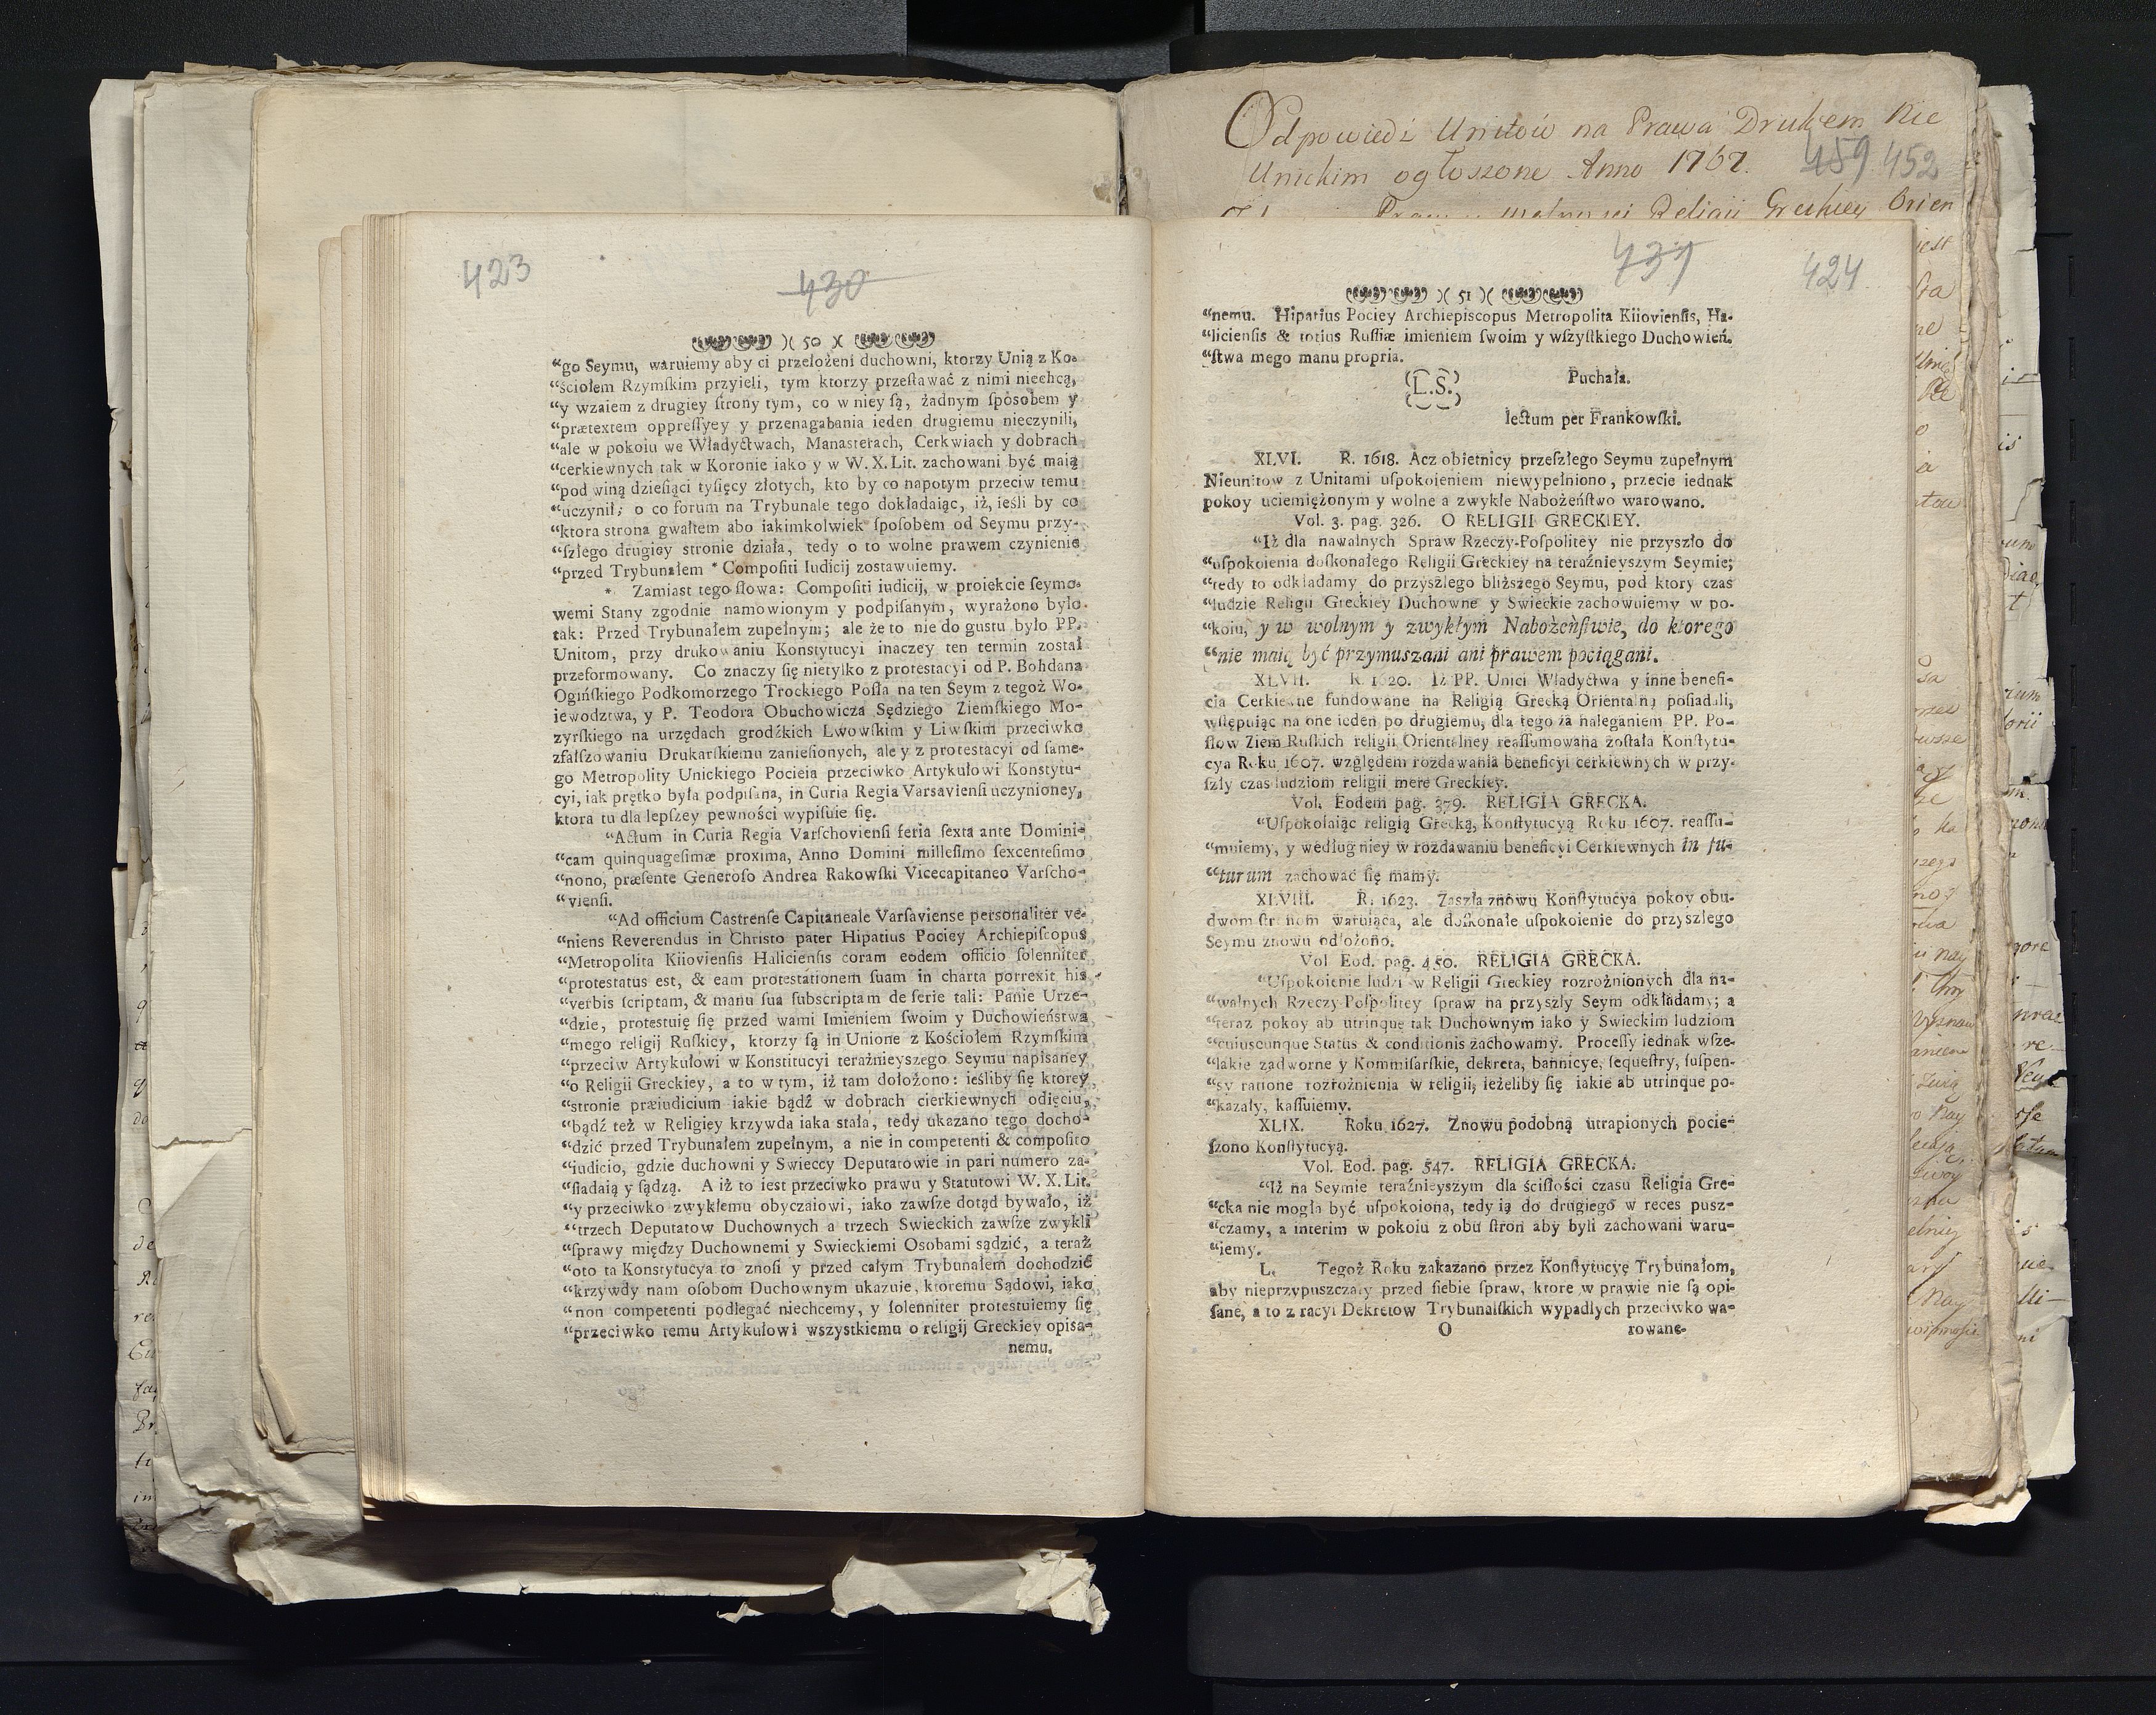 423
430
)( 50 )(
“go Seymu, waruiemy aby ci przełożeni duchowni, ktorzy Unią z Ko-
“ściołem Rzymſkim przyieli, tym ktorzy przeſtawać z nimi niechcą,
“y wzaiem z drugiey ſtrony tym, co w niey ſą, żadnym ſpoſobem y
“prætextem oppreſſyey y przenagabania ieden drugiemu nieczynili,
“ale w pokoiu we Władyctwach, Manasterach, Cerkwiach y dobrach
“cerkiewnych tak w Koronie iako y w W. X. Lit. zachowani być maią
“pod winą dzieſiąci tyſięcy złotych, kto by co napotym przeciw temu
“uczynił; o co forum na Trybunale tego dokładaiąc, iż, ieśli by co
“ktora strona gwałtem abo iakimkolwiek ſpoſobem od Seymu przy-
“ſzłego drugiey stronie działa, tedy o to wolne prawem czynienie
“przed Trybunałem * Compoſiti Iudicij zostawuiemy.
* Zamiast tego ſłowa: Compoſiti iudicij, w proiekcie ſeymo-
wemi Stany zgodnie namowionym y podpiſanym, wyrażono było
tak: Przed Trybunałem zupełnym; ale że to nie do gustu było PP.
Unitom, przy drukowaniu Konstytucyi inaczey ten termin został
przeformowany. Co znaczy ſię nietylko z protestacyi od P. Bohdana
Ogińſkiego Podkomorzego Trockiego Poſła na ten Seym z tegoż Wo-
iewodztwa, y P. Teodora Obuchowicza Sędziego Ziemſkiego Mo-
zyrſkiego na urzędach grodźkich Lwowſkim y Liwſkim przeciwko
zfałſzowaniu Drukarſkiemu zanieſionych, ale y z protestacyi od ſame-
go Metropolity Unickiego Pocieia przeciwko Artykułowi Konstytu-
cyi, iak prętko była podpiſana, in Curia Regia Varsavienſi uczynioney,
ktora tu dla lepſzey pewności wypiſuie ſię.
“Actum in Curia Regia Varſchovienſi feria ſexta ante Domini-
“cam quinquageſimæ proxima, Anno Domini milleſimo ſexcenteſimo
“nono, præſente Generoſo Andrea Rakowſki Vicecapitaneo Varſcho-
“vienſi.
“Ad officium Castrenſe Capitaneale Varſaviense personaliter ve-
“niens Reverendus in Christo pater Hipatius Pociey Archiepiſcopus
“Metropolita Kiiovienſis Halicienſis coram eodem officio ſolenniter
“protestatus est, & eam protestationem ſuam in charta porrexit his
“verbis ſcriptam, & manu ſua ſubscriptam de ſerie tali: Panie Urze-
“dzie, protestuię ſię przed wami Imieniem ſwoim y Duchowieństwa
“mego religij Ruſkiey, ktorzy ſą in Unione z Kościołem Rzymſkim
“przeciw Artykułowi w Konstitucyi teraźnieyszego Seymu napisaney
“o Religii Greckiey, a to w tym, iż tam dołożono: ieśliby ſię ktorey
“stronie præiudicium iakie bądź w dobrach cierkiewnych odięciu,
“bądź też w Religiey krzywda iaka stała, tedy ukazano tego docho-
“dzić przed Trybunałem zupełnym, a nie in competenti & compoſito
“iudicio, gdzie duchowni y Swieccy Deputatowie in pari numero za-
“ſiadaią y ſądzą. A iż to iest przeciwko prawu y Statutowi W. X. Lit.
“y przeciwko zwykłemu obyczaiowi, iako zawſze dotąd bywało, iż
“trzech Deputatow Duchownych a trzech Swieckich zawſze zwykli
“ſprawy między Duchownemi y Swieckiemi Osobami sądzić, a teraż
“oto ta Konstytucya to znoſi y przed całym Trybunałem dochodzić
“krzywdy nam oſobom Duchownym ukazuie, ktoremu Sądowi, iako
“non competenti podlegać niechcemy, y ſolenniter protestuiemy ſię
“przeciwko temu Artykułowi wszystkiemu o religij Greckiey opisa-
nemu.
Odpowiedź Unitow na Prawa Drukiem Nie
Unickim ogłoszone Anno 1767.
459 452
431
424
)( 51 )(
“nemu. Hipatius Pociey Archiepiscopus Metropolita Kiiovienſis, Ha-
“licienſis & totius Ruſſiæ imieniem ſwoim y wſzyſtkiego Duchowień-
“ſtwa mego manu propria.
L.S.
Puchała.
lectum per Frankowſki.
XLVI. R. 1618. Acz obietnicy przeſzłego Seymu zupełnym
Nieunitow z Unitami uſpokoieniem niewypełniono, przecie iednak
pokoy uciemiężonym y wolne a zwykłe Nabożeńſtwo warowano.
Vol. 3. pag. 326. O RELIGII GRECKIEY.
“Iż dla nawalnych Spraw Rzeczy-Poſpolitey nie przyszło do
“uſpokoienia doſkonałego Religii Greckiey na teraźnieyszym Seymie;
“tedy to odkładamy do przyszłego bliższego Seymu, pod ktory czas
“ludzie Religii Greckiey Duchowne y Swieckie zachowuiemy w po-
“koiu, y w wolnym y zwykłym Nabożeńſtwie, do ktorego
“nie maią być przymuszani ani prawem pociągani.
XLVII. R. 1620. Iż PP. Unici Władyctwa y inne benefi-
cia Cerkiewne fundowane na Religią Grecką Orientalną poſiadali,
wſtępuiąc na one ieden po drugiemu, dla tego za naleganiem PP. Po-
ſłow Ziem Ruſkich religii Orientalney reaſſumowana została Konſtytu-
cya Roku 1607. względem rozdawania beneficyi cerkiewnych w przy-
ſzły czas ludziom religii mere Greckiey.
Vol. Eodem pag. 379. RELIGIA GRECKA.
“Uſpokoiaiąc religią Grecką, Konſtytucyą Roku 1607. reaſſu-
“muiemy, y według niey w rozdawaniu beneficyi Cerkiewnych in fu-
“turum zachować ſię mamy.
XLVIII. R. 1623. Zaszła znowu Konſtytucya pokoy obu-
dwom ſtronom waruiąca, ale doſkonałe uſpokoienie do przyszłego
Seymu znowu odłożono.
Vol Eod. pag. 450. RELIGIA GRECKA.
“Uſpokoienie ludzi w Religii Greckiey rozrożnionych dla na-
“walnych Rzeczy-Poſpolitey ſpraw na przyszły Seym odkładamy; a
“teraz pokoy ab utrinque tak Duchownym iako y Swieckim ludziom
“cuiuscunque Status & conditionis zachowamy. Proceſſy iednak wſze-
“lakie zadworne y Kommiſarſkie, dekreta, bannicye, ſequeſtry, ſuſpen-
“ſy ratione rozrożnienia w religii, ieżeliby ſię iakie ab utrinque po-
“kazały, kaſſuiemy.
XLIX. Roku 1627. Znowu podobną utrapionych pocie-
ſzono Konſtytucyą.
Vol. Eod. pag. 547. RELIGIA GRECKA.
“Iż na Seymie teraźnieyszym dla ściſłości czasu Religia Gre-
“cka nie mogła być uſpokoiona, tedy ią do drugiego w reces pusz-
“czamy, a interim w pokoiu z obu ſtron aby byli zachowani waru-
“iemy.
L. Tegoż Roku zakazano przez Konſtytucyę Trybunałom,
aby nieprzypuszczały przed ſiebie ſpraw, ktore w prawie nie ſą opi-
ſane, a to z racyi Dekretow Trybunalſkich wypadłych przeciwko wa-
O
rowane-